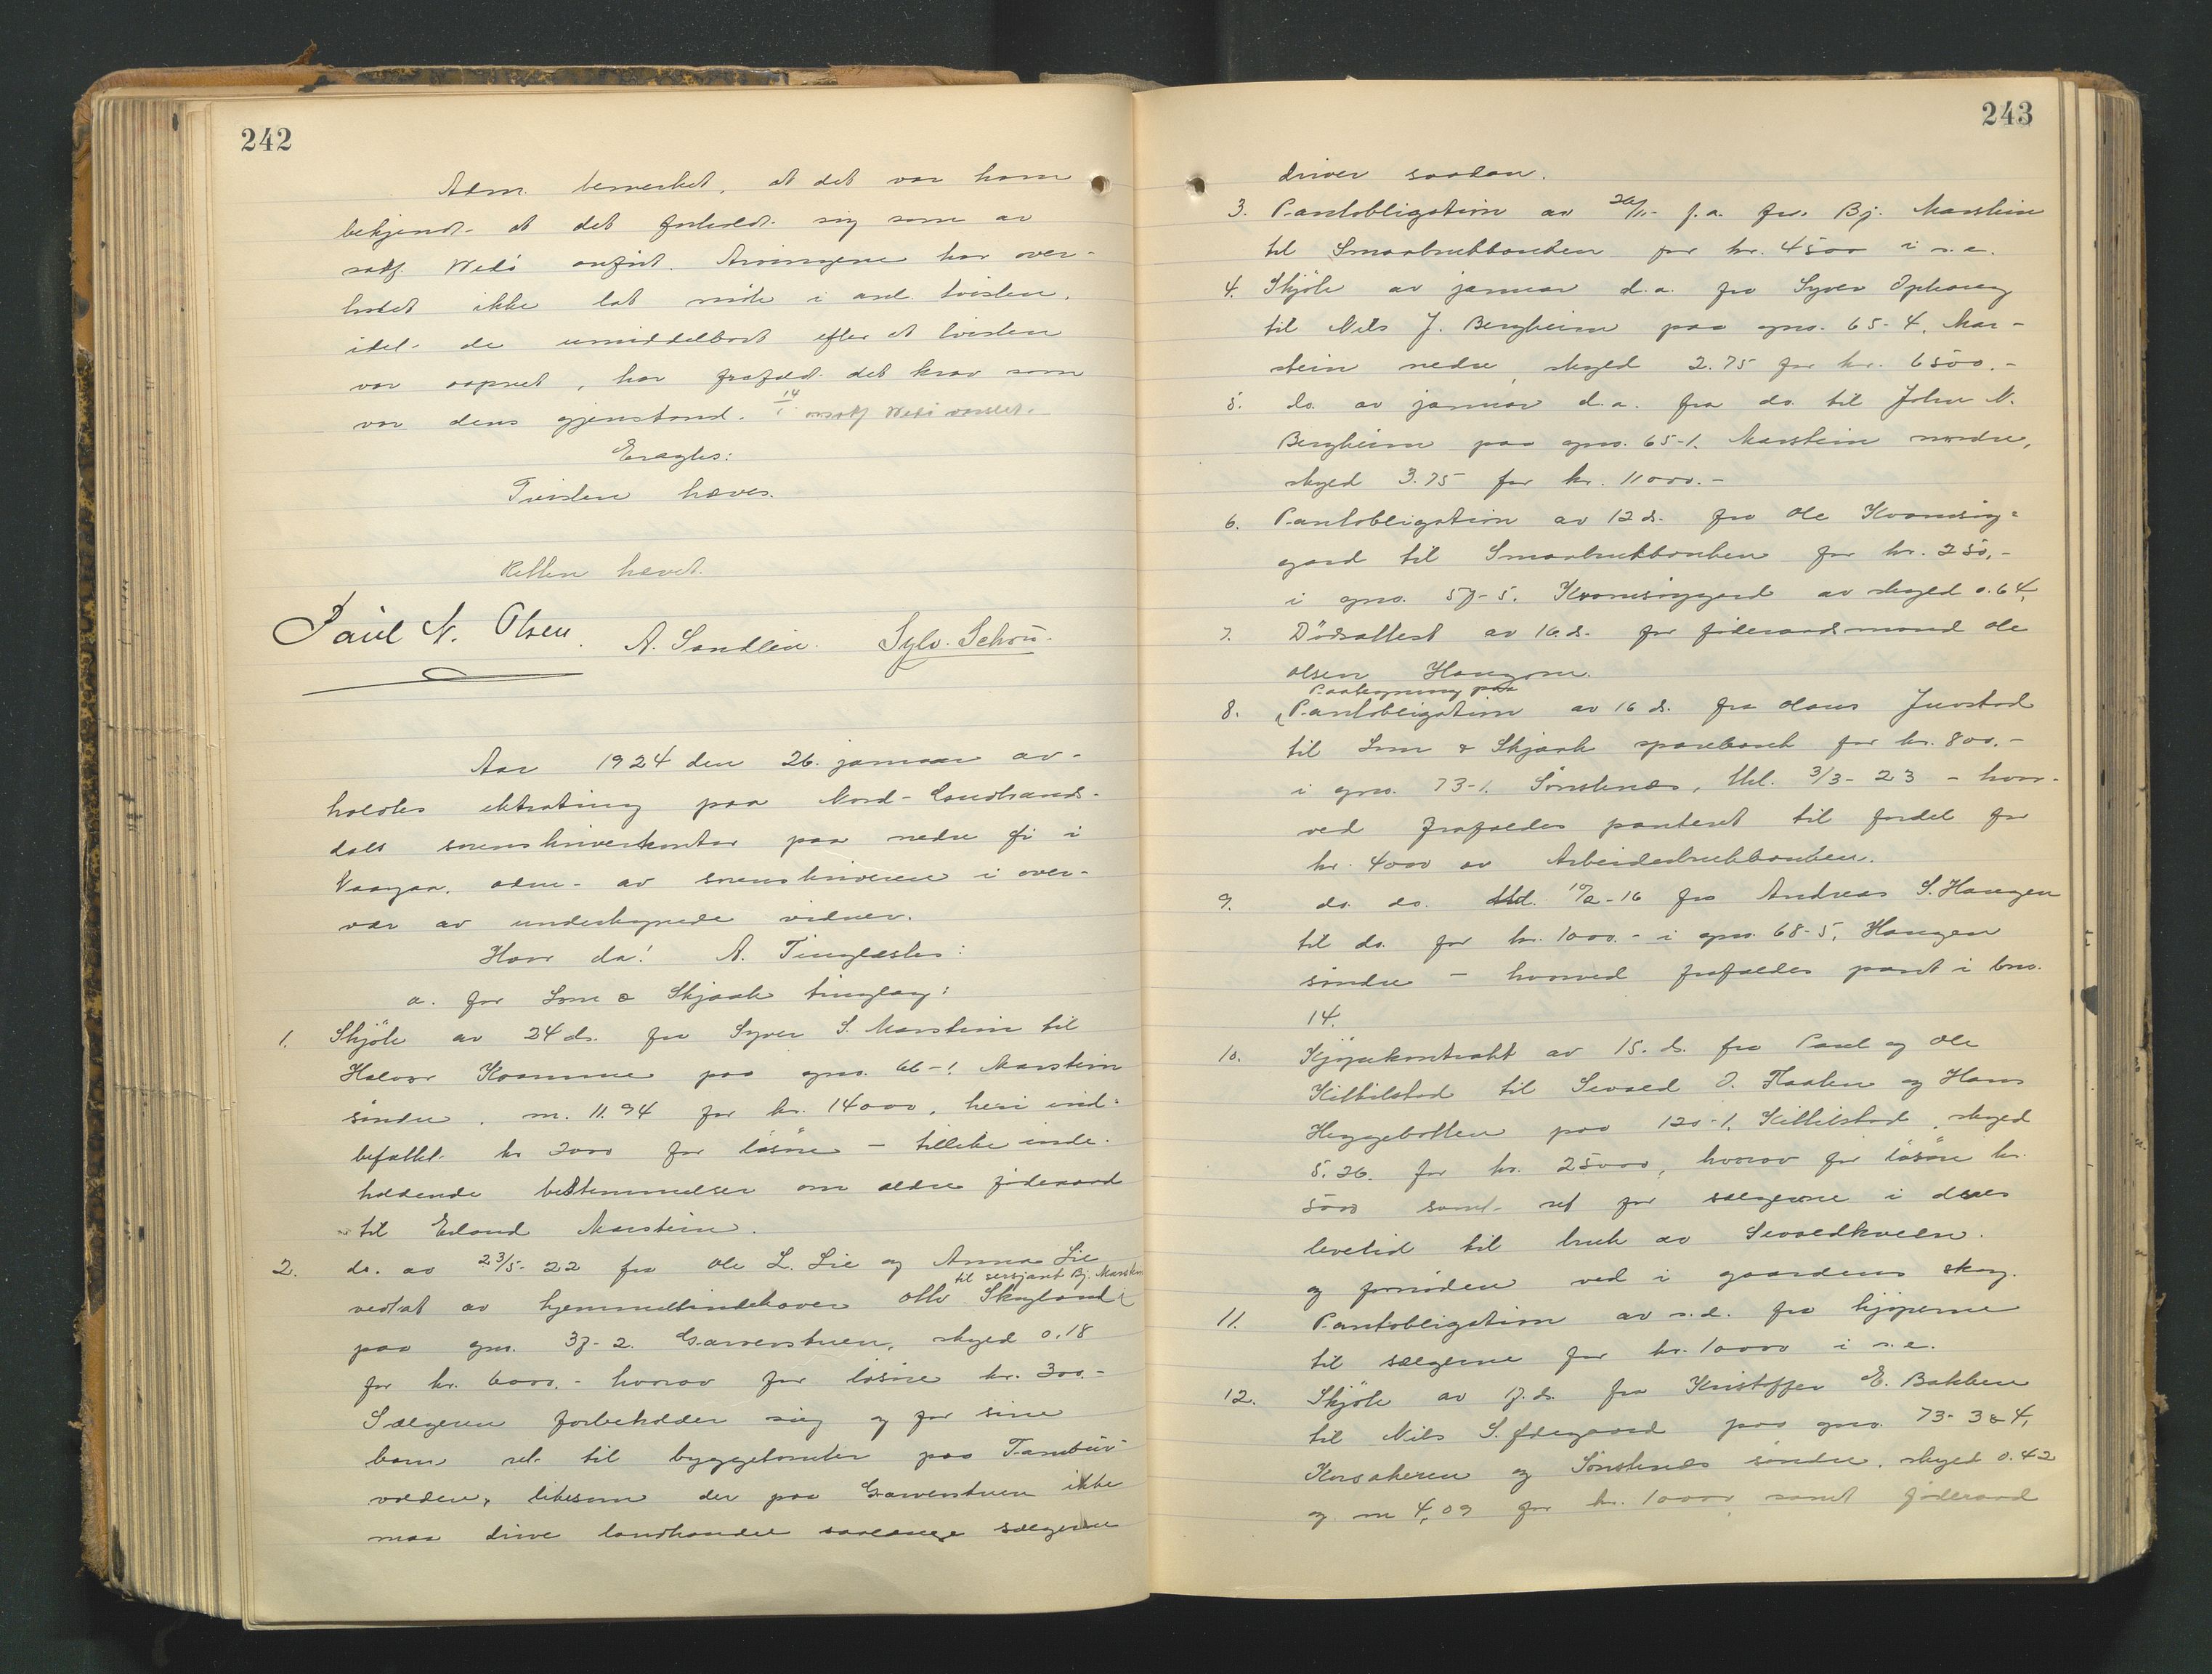 242
Adm. bemerket, at det var ham
bekjendt at det forholdt sig som av
sakf. Webø anført. Arvingene har over-
hodet ikke lat møte i anl. tvisten,
idet de umiddelbart efter at tvisten
var aapnet, har frafaldt det krav som
var dens gjenstand. 14/1 Webø varslet.
Eragtes:
Tvisten hæves.
Retten hævet.
Paul N. Olsen. A. Sandlien. Sylv. Schou.
Aar 1924 den 26. januar av-
holdtes ekstrating paa Nord-Gudbrands-
dals sorenskriverkontor paa nedre Ø i
Vaagaa, adm. av sorenskriveren i over-
vær av undertegnede vidner.
Hvor da: A. Tinglæstes:
a. for Lom & Skjaak tinglag:
1. Skjøte av 24 ds. fra Syver S. Marstein til
Halvor Kvamme paa gno. 66-1 Marstein
søndre, m. 11.94 for kr. 14000, heri ind-
befattet kr 2000 for løsøre - tillike inde-
holdende bestemmelser om ældre føderaad
til Erland Marstein.
2. do. av 23/5-22 fra Ole L. Lie og Anna Lie
til sersjant Bj. Marstein
vedtat av hjemmelsindehaver Otto Skogland
paa gno. 37-2. Garverstuen, skyld 0.18
for kr. 6000.- hvorav for løsøre kr. 300.-
Sælgeren forbeholder sig og for sine
barn ret til byggetomter paa Tambur-
volden, likesom der paa Garverstuen ikke
maa drive landhandel saalænge sælgeren
243
driver saadan.
3. Pantobligation av 20/11- f.a. fra Bj. Marstein
til Smaabrukbanken for kr. 4500 i s.e.
4. Skjøte av januar d.a. fra Syver Ophaug
til Nils J. Bergheim paa gno. 65-4, Mar-
stein nedre, skyld 2.75 for kr. 6500.-
5. do. av januar d.a. fra do. til John N.
Bergheim paa gno. 65-1. Marstein nordre,
skyld 3.75 for kr. 11000.-
6. Pantobligation av 12 ds. fra Ole Kvamsing-
gard til Smaabrukbanken for kr. 250,-
i gno. 57-5. Kvamsinggard av skyld 0.64.
7. Dødsattest av 16 ds. for føderaadsmand Ole
Olsen Haugom.
Paategning paa
8. Pantobligation av 16 ds. fra Olaus Juvstad
til Lom & Skjaak sparebank for kr. 800.-
i gno. 73-1. Sønstenes, thl. 3/3-23 - hvor-
ved frafaldes panteret til fordel for
kr. 4000 av Arbeiderbrukbanken.
9. do. do. thl. 19/2-16 fra Andreas S. Haugen
til do. for kr. 1000.- i gno. 68-5, Haugen
søndre - hvorved frafaldes pant i bno.
14.
10. Kjøpekontrakt av 15. ds. fra Paul og Ole
Kittilstad til Sevald O. Flaaten og Hans
Heggebotten paa 120-1, Kittilstad, skyld
5.26. for kr. 25000, hvorav for løsøre kr.
5000 samt ret for sælgerne i deres
levetid til bruk av Sevaldkveen.
og fornøden ved i gaardens skog.
11. Pantobligation av s.d. fra kjøperne
til sælgerne for kr. 10000 i s.e.
12. Skjøte av 17. ds. fra Kristoffer E. Bakken
til Nils S. Ødegaard paa gno. 73-3 & 4,
Korsakeren og Sønstenes søndre, skyld 0.42
og m 4,09 for kr. 10000 samt føderaad